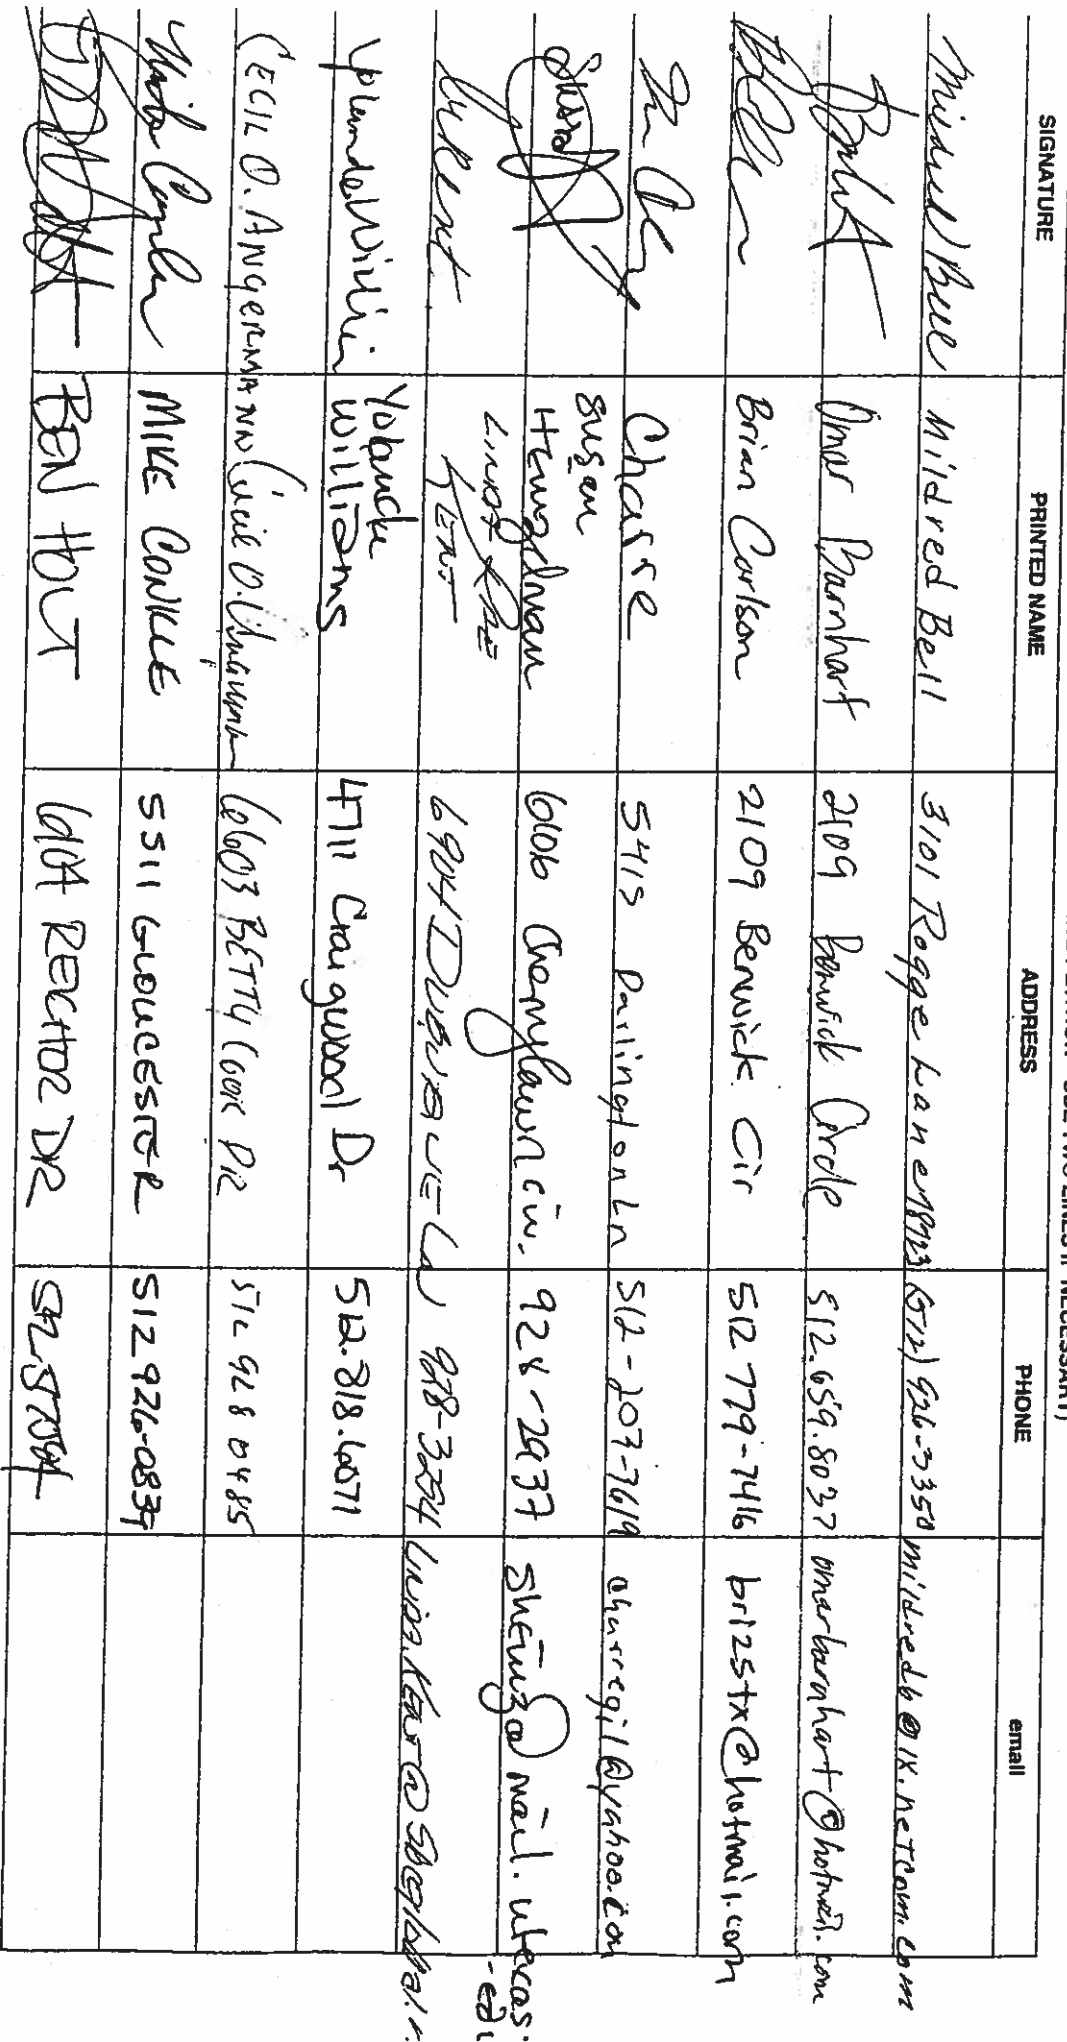 USE TWO LINES IF NECESSARY)
SIGNATURE PRINTED NAME ADDRESS PHONE email
Mildred Bell Mildred Bell 3101 Rogge Lane 78723 (512) 926-3350 mildredb@ix.netcom.com
Omar Barnhart 2109 Berwick Circle 512.659.8037 omarbarnhart@hotmail.com
Brian Carlson 2109 Berwick Cir 512 779-7416 bri25tx@hotmail.com
Charre 5415 Darlington Ln 512-207-7619 charregil@yahoo.com
Susan
Susan Hewgelman 6106 Cherrylawn Cir. 928-2937 mail.utexas.
edu
Kent KENT 6904 LN 928-3254
Yolanda
Yolanda Willi Williams 4711 Craigwood Dr 512.818.6071
CECIL O. ANGERMANN Cecil O. 6603 BETTY COOK DR 512 928 0485
Mike Conkle MIKE CONKLE 5511 GLOUCESTER 512 926-0839
BEN HOLT RECTOR DR